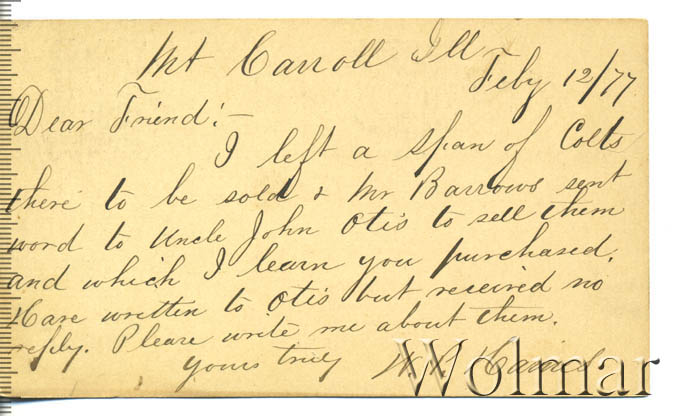 Mt Carroll Ill
Feby 12/77
Dear Friend!-
I left a span of Colts
there to be sold & Mr Barrows sent
word to Uncle John Otis to sell them
and which I learn you purchased.
Have written to Otis but received no
reply. Please write me about them.
Yours truly W.
Wolmar